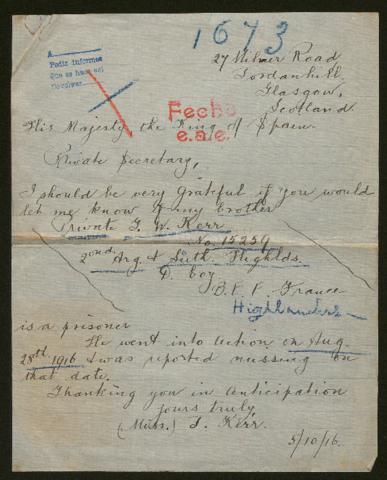 1673
A
Pedir informes
Que se hace así
27 Milner Road
Jordanhill,
Glasgow,
Scotland.
Fecho
e.a.e.
His Majesty the King of Spain.
Private Secretary,
I should be very grateful if you would
let me know if my brother
Private G. W. Kerr
No. 15259
2nd Arg & Suth. Highlds.
D. Coy
B. E. F. France
Highlanders
is a prisoner
He went into action on Aug.
28th 1916 & was reported missing on
that date.
Thanking you in anticipation
yours truly,
(Miss.) J. Kerr.
5/10/16.